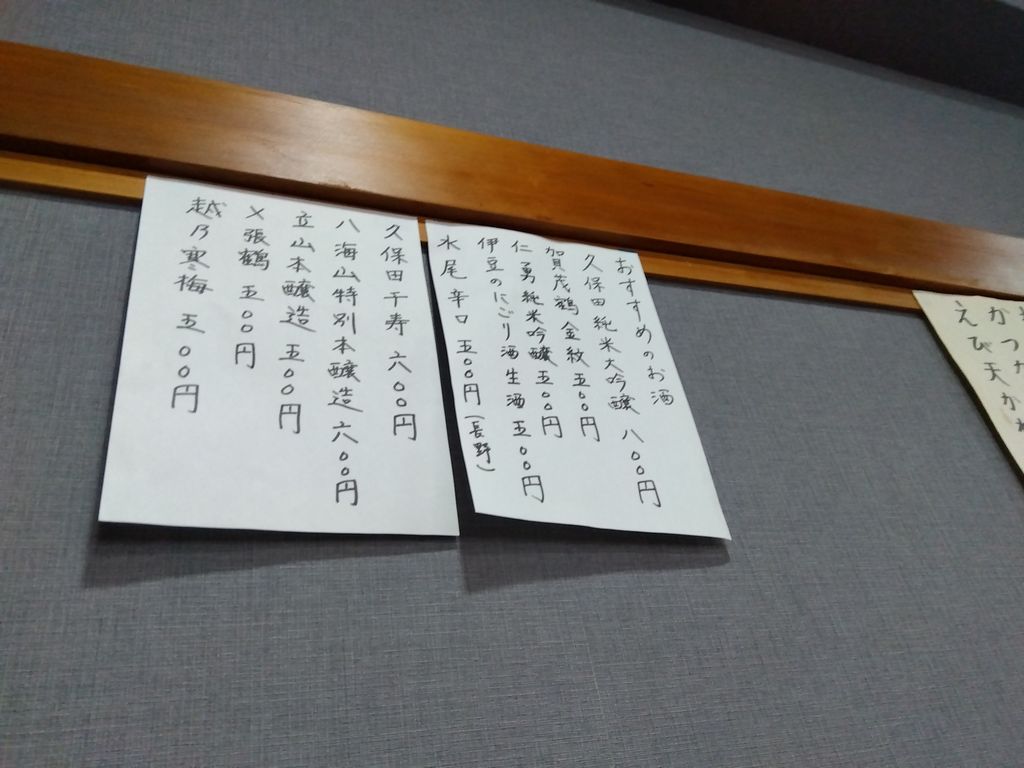 えび天かね
おすすめのお酒
久保田純米大吟醸 八〇〇円
加賀茂鶴金紋 五〇〇円
仁勇純米吟醸 五〇〇円
伊豆のにごり酒生酒 五〇〇円
水尾 辛口 五〇〇円(長野)
久保田千寿 六〇〇円
八海山特別本醸造 六〇〇円
立山本醸造 五〇〇円
〆張鶴 五〇〇円
越乃寒梅 五〇〇円